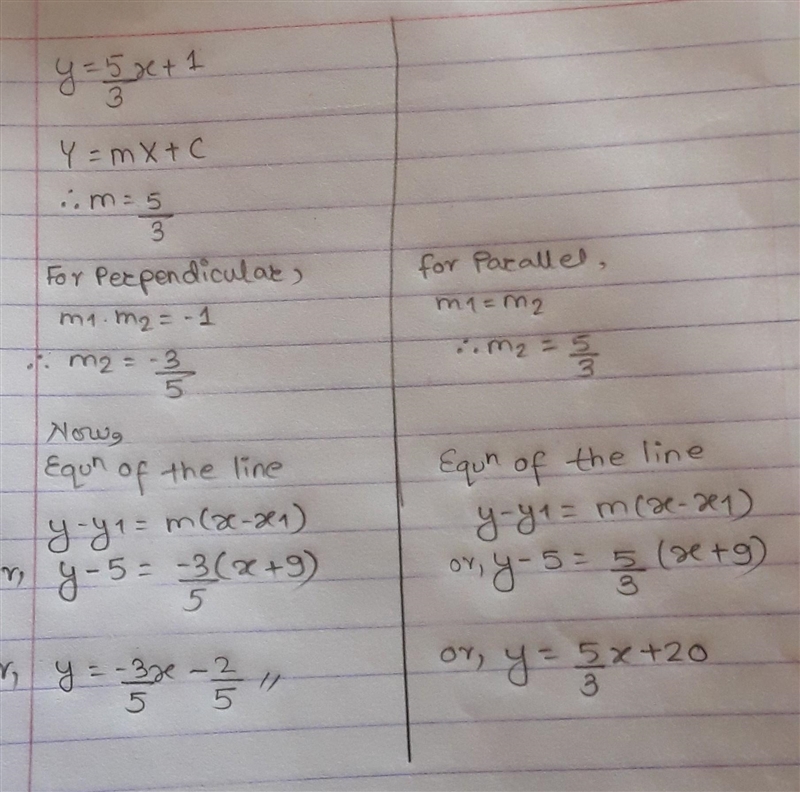 y = 5/3 x + 1
Y = mX + C
∴ m = 5/3
For Perpendicular,
m1 . m2 = -1
∴ m2 = -3/5
Now,
Equn of the line
y - y1 = m(x - x1)
r, y - 5 = -3/5 (x + 9)
r, y = -3x/5 - 2/5 //
for Parallel,
m1 = m2
∴ m2 = 5/3
Equn of the line
y - y1 = m(x - x1)
or, y - 5 = 5/3 (x + 9)
or, y = 5/3 x + 20